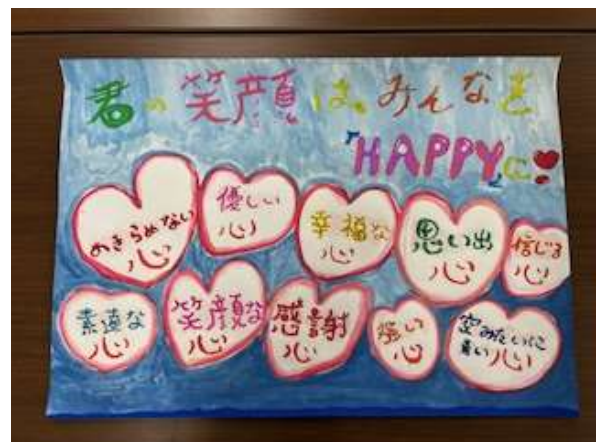 君の笑顔は、みんなを
「HAPPY」に!
あきらめない心
優しい心
幸福な心
思い出心
信じる心
素直な心
笑顔な心
感謝心
強い心
空みたいに青い心